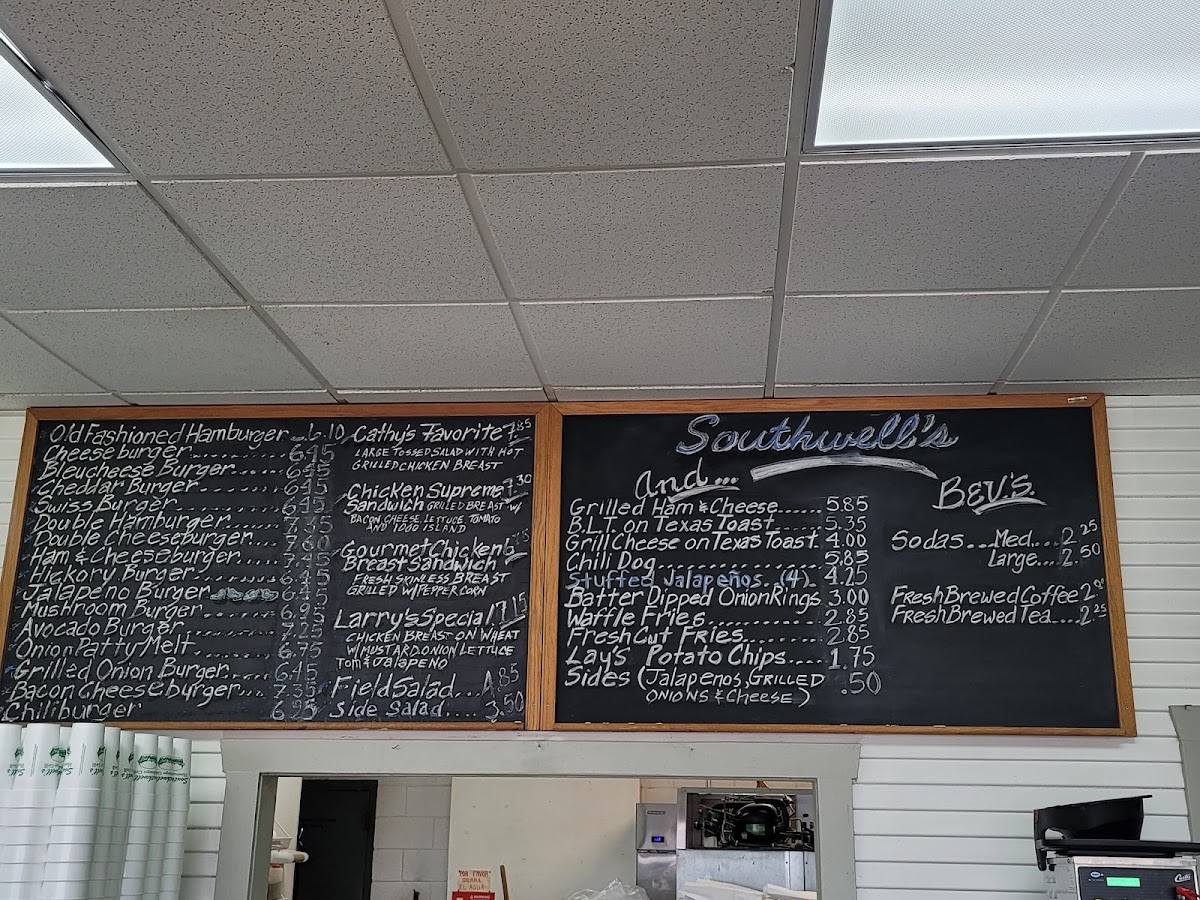 Old Fashioned Hamburger 6.10
Cheeseburger.......... 6.45
Bleucheese Burger....... 6.45
Cheddar Burger....... 6.45
Swiss Burger.......... 6.45
Double Hamburger.... 7.35
Double Cheeseburger.... 7.60
Ham & Cheeseburger 7.45
Hickory Burger....... 6.45
Jalapeño Burger 6.45
Mushroom Burger..... 6.95
Avocado Burger...... 7.25
Onion Patty Melt..... 6.75
Grilled Onion Burger..... 6.45
Bacon Cheeseburger..... 7.35
Chiliburger
Cathy's Favorite 7.85
LARGE TOSSED SALAD WITH HOT
GRILLED CHICKEN BREAST
Chicken Supreme 7.30
Sandwich GRILLED BREAST W/
BACON CHEESE LETTUCE TOMATO
AND 1000 ISLAND
Gourmet Chicken
Breast Sandwich
FRESH SKINLESS BREAST
GRILLED W/PEPPERCORN
Larry's Special 7.15
CHICKEN BREAST ON WHEAT
W/MUSTARD ONION LETTUCE
Tom & Jalapeno
Field Salad... 4.85
Side Salad..... 3.50
Southwell's
And...
Grilled Ham & Cheese...... 5.85
B.L.T. on Texas Toast...... 5.35
Grill Cheese on Texas Toast. 4.00
Chili Dog.................. 5.85
Stuffed Jalapeños.. (4). 4.25
Batter Dipped Onion Rings 3.00
Waffle Fries............ 2.85
Fresh Cut Fries......... 2.85
Lay's Potato Chips.... 1.75
Sides (Jalapenos, GRILLED .50
ONIONS & CHEESE)
BEV'S.
Sodas...Med.... 2.25
Large.... 2.50
Fresh Brewed Coffee 2.00
Fresh Brewed Tea.... 2.25
POR FAVOR
CIERRA
EL AGUA